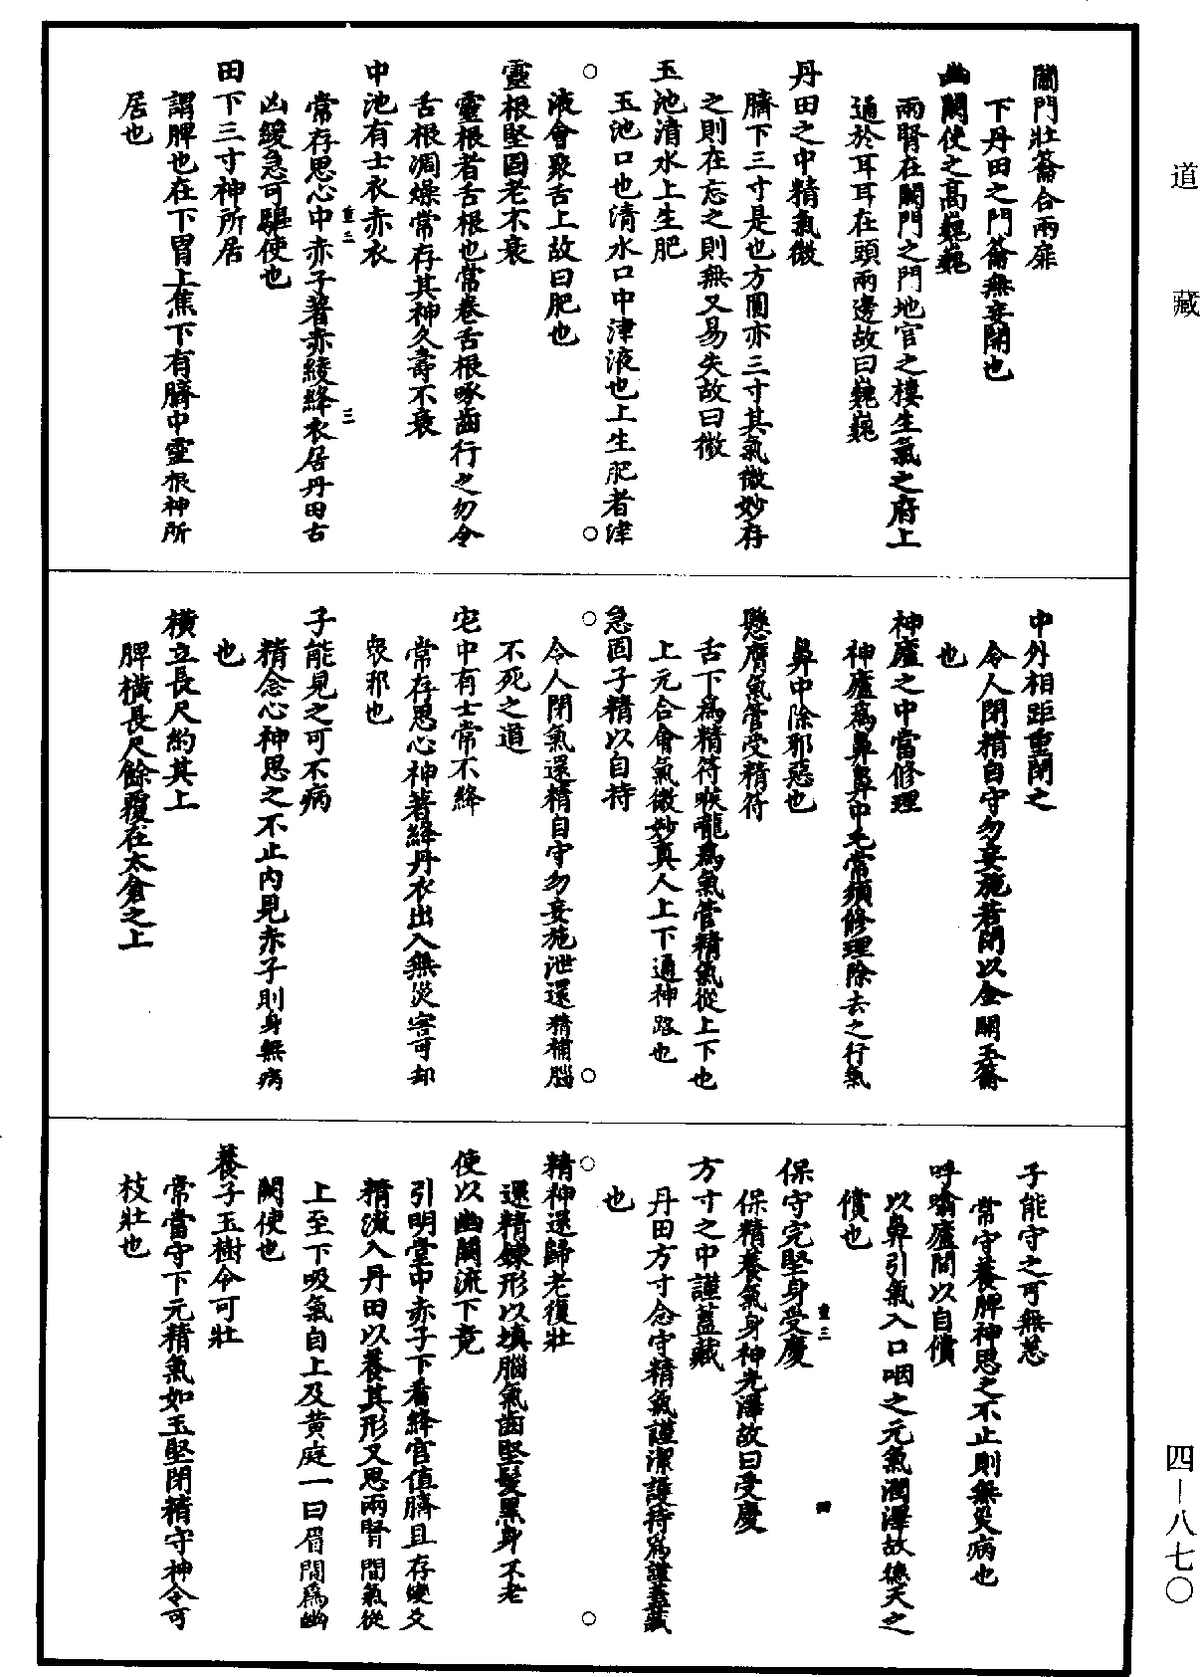 道藏
關門壯籥合兩扉
下丹田之門籥無妄開也
幽闕使之高巍巍
兩腎在闕門之門地官之樓生氣之府上
通於耳耳在頭兩邊故曰巍巍
丹田之中精氣微
臍下三寸是也方圓亦三寸其氣微妙存
之則在忘之則無又易失故曰微
玉池清水上生肥
玉池口也清水口中津液也上生肥者津
液會聚舌上故曰肥也
靈根堅固老不衰
靈根者舌根也常卷舌根啄齒行之勿令
舌根凋燥常存其神久壽不衰
中池有士衣赤衣
常存思心中赤子著赤綾絳衣居丹田吉
凶緩急可驅使也
田下三寸神所居
謂脾也在下胃上焦下有臍中靈根神所
居也
中外相距重閉之
令人閉精自守勿妄施若閉以金關玉籥
也
神廬之中當修理
神廬為鼻鼻中毛常須修理除去之行氣
鼻中除邪惡也
懸膺氣管受精符
舌下為精符喉嚨為氣管精氣從上下也
上元合會氣微妙真人上下通神路也
急固子精以自持
令人閉氣還精自守勿妄施泄還精補腦
不死之道
宅中有士常不絳
常存思心神著絳丹衣出入無災害可却
衆邪也
子能見之可不病
精念心神思之不止內見赤子則身無病
也
橫立長尺約其上
脾橫長尺餘覆在太倉之上
子能守之可無恙
常守養脾神思之不止則無災病也
呼噏廬間以自償
以鼻引氣入口咽之元氣潤澤故德天之
償也
保守完堅身受慶
保精養氣身神光澤故曰受慶
方寸之中謹蓋藏
丹田方寸念守精氣謹潔護持為謹蓋藏
也
精神還歸老復壯
還精鍊形以填腦氣齒堅髮黑身不老
使以幽闕流下竟
引明堂中赤子下看絳宮值臍且存變爻
精流入丹田以養其形又思兩腎間氣從
上至下吸氣自上及黃庭一曰眉間為幽
闕使也
養子玉樹令可壯
常當守下元精氣如玉堅閉精守神令可
枝壯也
四－八七〇